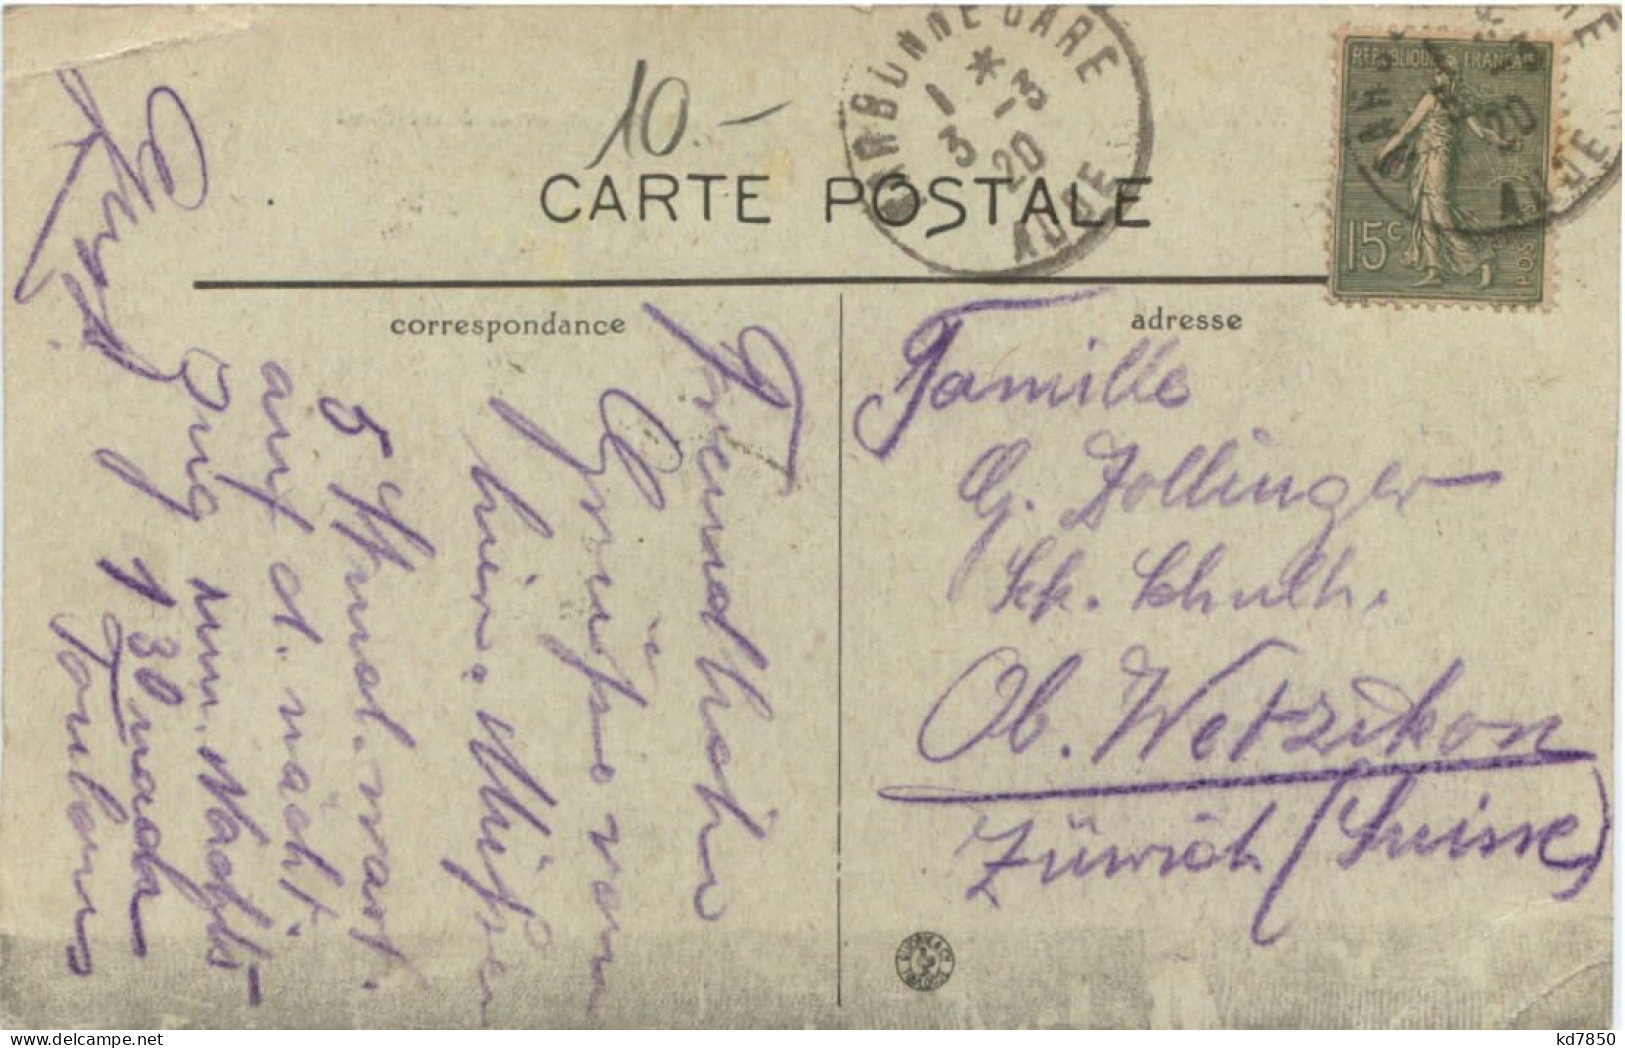 10.-
CARTE POSTALE
NARBONNE GARE
1 * -3
3 20
AUDE
REPUBLIQUE FRANÇAISE
15c
POSTES
20
AUDE
correspondance
adresse
Freundliche
Grüsse von
hier. Müssen
5 Stund. wart.
auf d. nächst.
Zug um. Nachts
1 30 nach
Toulouse
Gruss
Famille
G. Zollinger
Sk. Schulh.
Ob. Wetzikon
Zürich (Suisse)
kd7850